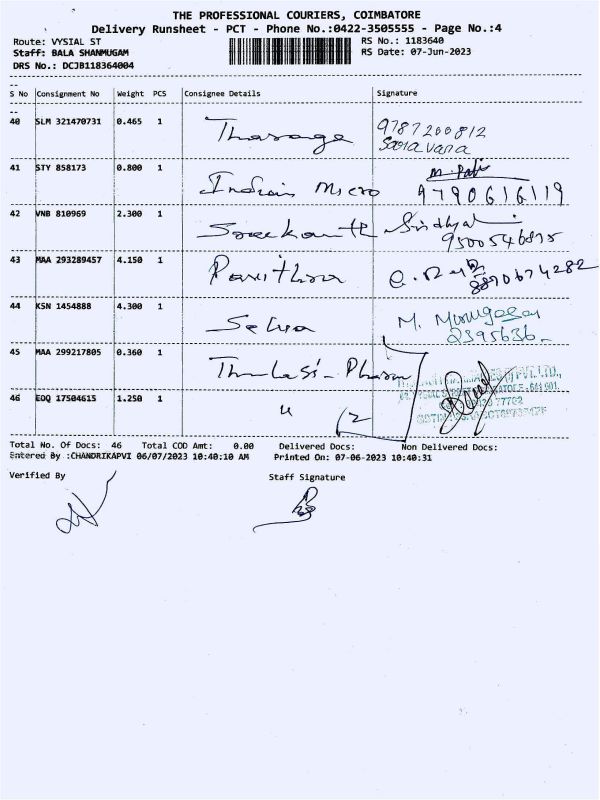 THE PROFESSIONAL COURIERS, COIMBATORE
Delivery Runsheet - PCT - Phone No.:0422-3505555 - Page No.:4
Route: VYSIAL ST
RS No.: 1183640
Staff: BALA SHANMUGAM
RS Date: 07-Jun-2023
DRS No.: DCJB118364004
S No Consignment No Weight PCS Consignee Details Signature
40 SLM 321470731 0.465 1 Tharage 9787200812
Saravana
41 STY 858173 0.800 1 Indian Micro 9790616119
42 VNB 810969 2.300 1 Sreekanth
43 MAA 293289457 4.150 1 Pavithra 8890674282
44 KSN 1454888 4.300 1 Selva M. Murugesan
2395636
45 MAA 299217805 0.360 1 Thulasi - Pharm
46 EOQ 17504615 1.250 1 "
Total No. Of Docs: 46 Total COD Amt: 0.00 Delivered Docs: Non Delivered Docs:
Entered By :CHANDRIKAPVI 06/07/2023 10:40:10 AM Printed On: 07-06-2023 10:40:31
Verified By Staff Signature